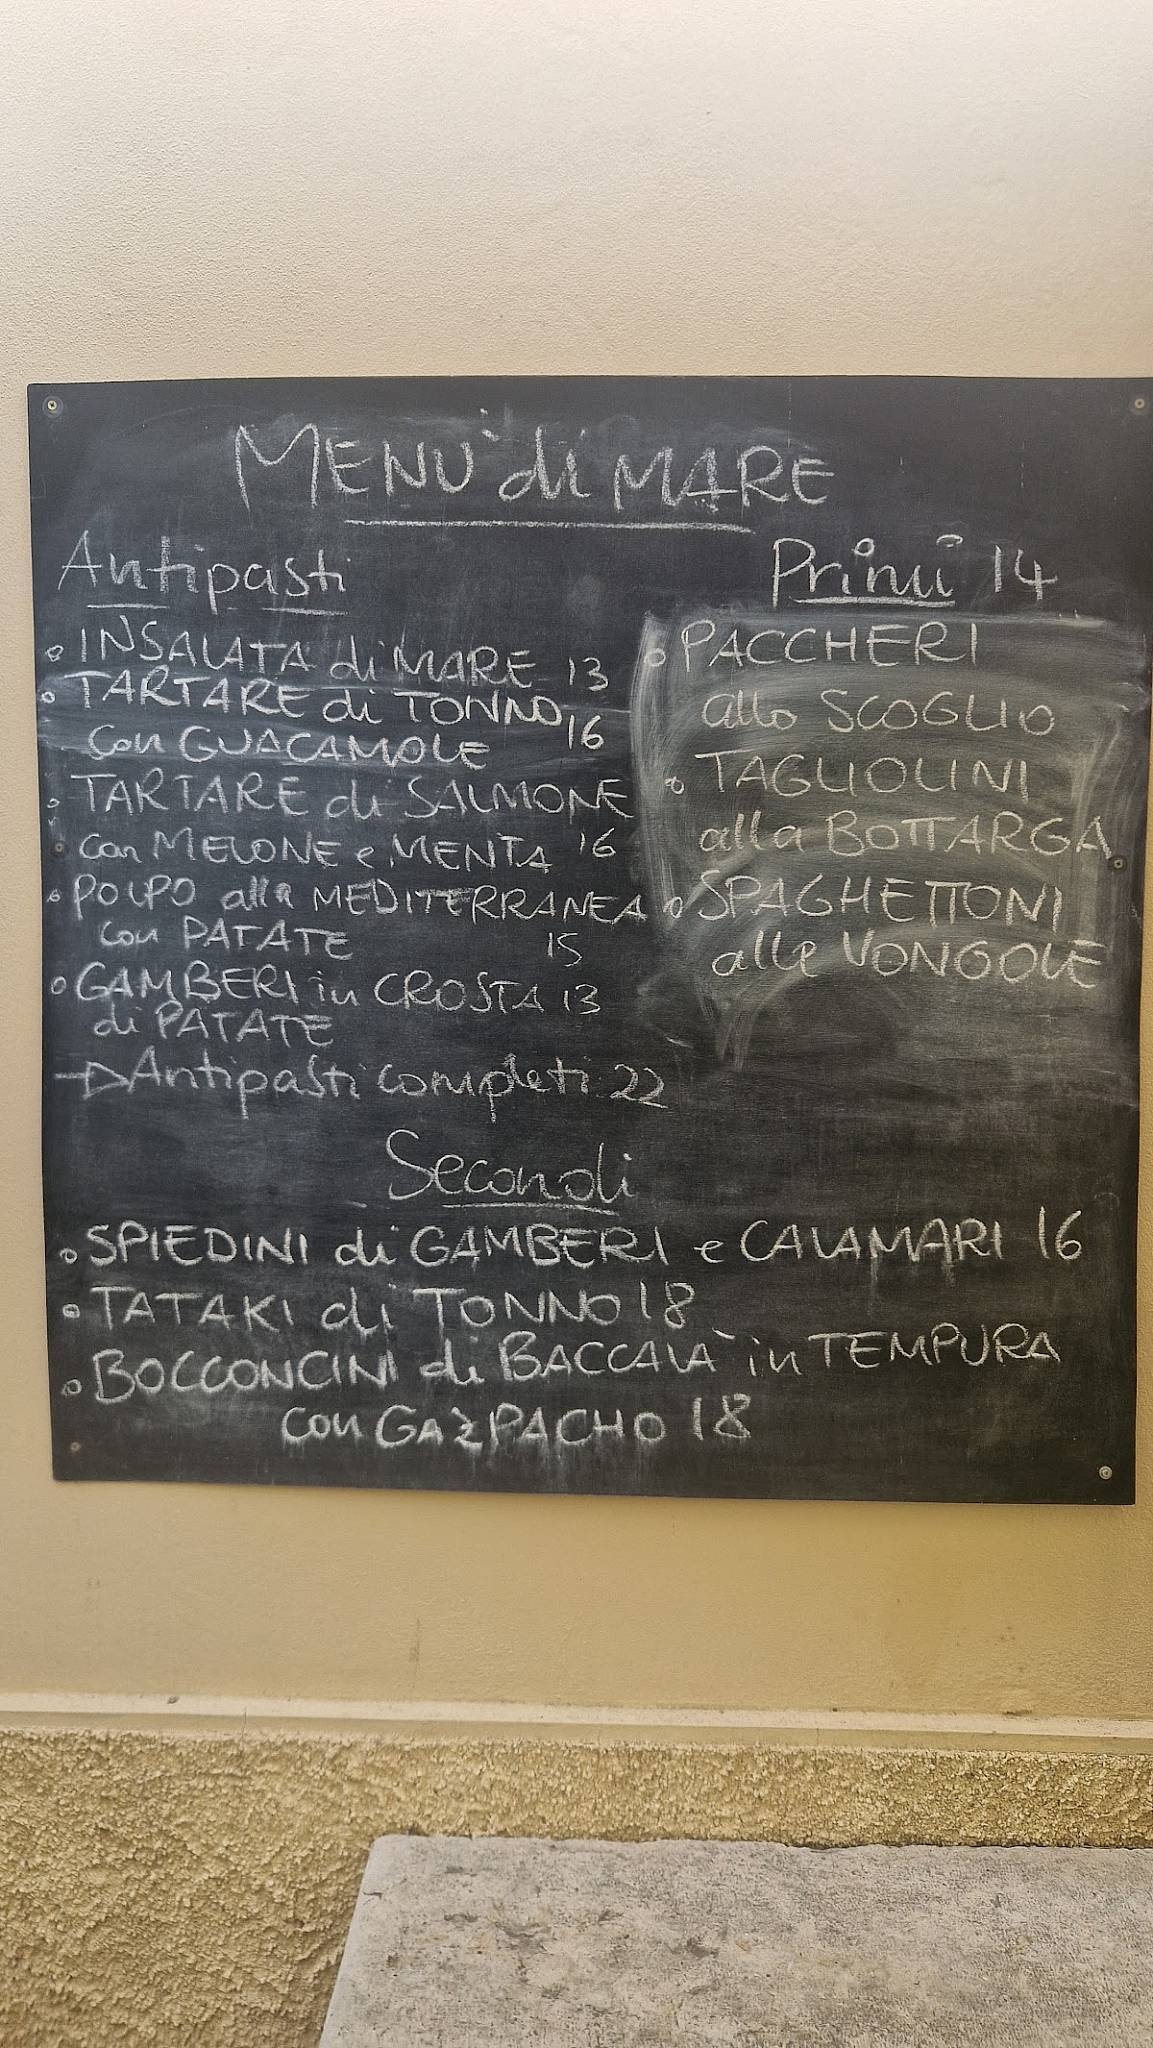 MENÙ di MARE
Antipasti
• INSALATA di MARE 13
• TARTARE di TONNO
con GUACAMOLE 16
• TARTARE di SALMONE
con MELONE e MENTA 16
• POLPO alla MEDITERRANEA
con PATATE 15
• GAMBERI in CROSTA 13
di PATATE
→ Antipasti completi 22
Primi 14
• PACCHERI
allo SCOGLIO
• TAGLIOLINI
alla BOTTARGA
• SPAGHETTONI
alle VONGOLE
Secondi
• SPIEDINI di GAMBERI e CALAMARI 16
• TATAKI di TONNO 18
• BOCCONCINI di BACCALÀ in TEMPURA
con GAZPACHO 18